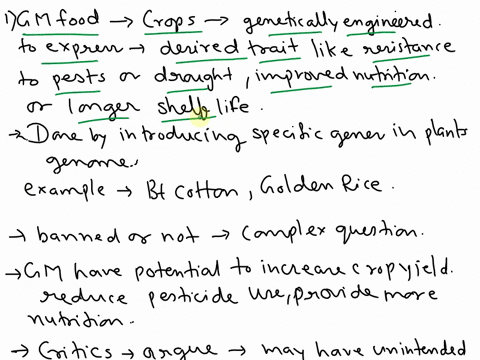 1) GM food → Crops → genetically engineered.
to express → desired trait like resistance
to pests or draught, improved nutrition.
or longer shelf life.
→ Done by introducing specific genes in plants
genome.
example → Bt cotton, Golden Rice.
→ banned or not → complex question.
→ GM have potential to increase crop yield.
reduce pesticide use, provide more
nutrition.
→ Critics → argue → may have unintended